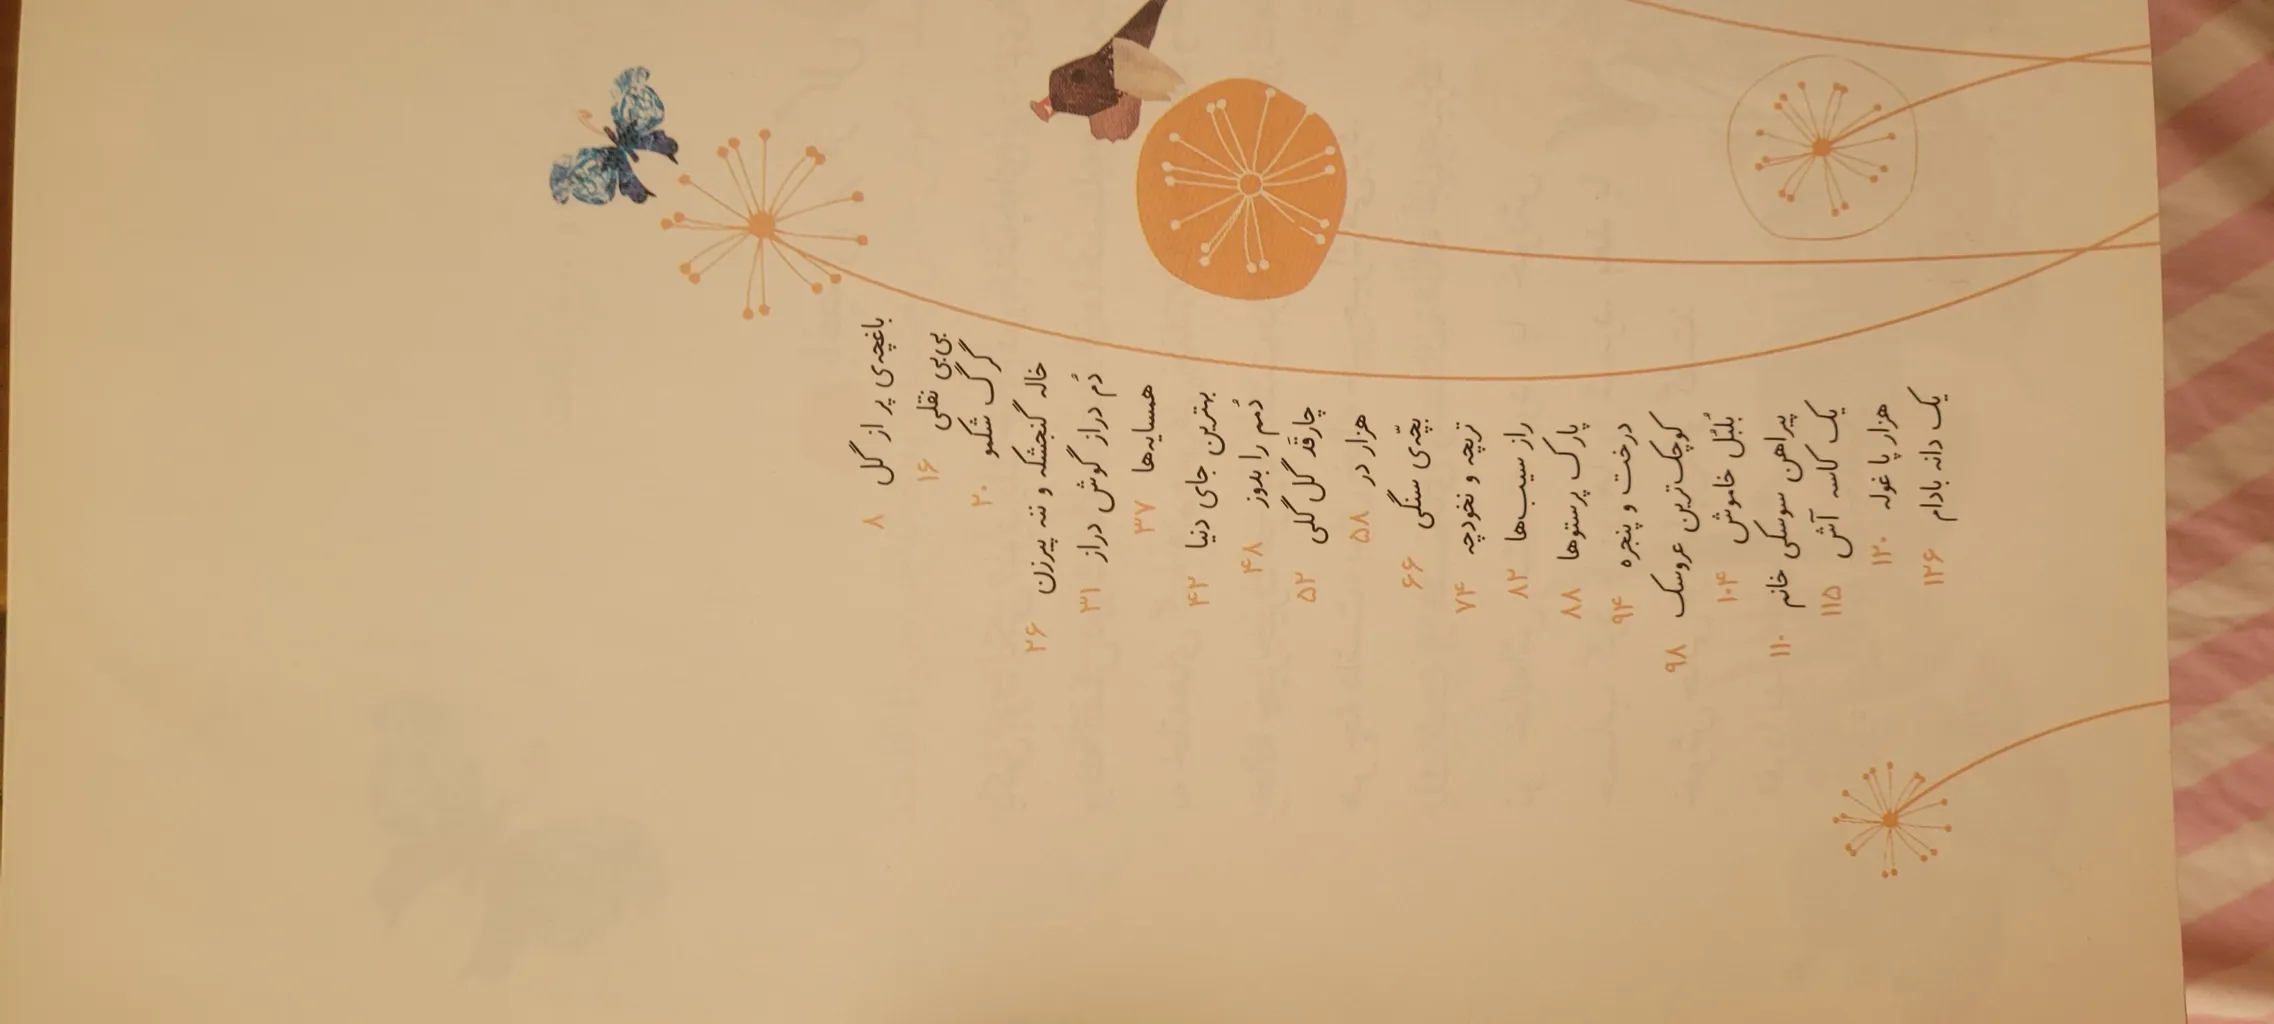 باغچه‌ی پر از گل ۸
بی‌بی نقلی ۱۶
گرگ شکمو ۲۰
خاله گنجشکه و ننه پیرزن ۲۶
دُم دراز گوش دراز ۳۱
همسایه‌ها ۳۷
بهترین جای دنیا ۴۲
دُمم را بدوز ۴۸
چارقَد گل گلی ۵۲
هزار در ۵۸
بچّه‌ی سنگی ۶۶
تربچه و نخودچه ۷۴
راز سیب‌ها ۸۲
پارک پرستوها ۸۸
درخت و پنجره ۹۴
کوچک‌ترین عروسک ۹۸
بُلبُل خاموش ۱۰۴
پیراهن سوسکی خانم ۱۱۰
یک کاسه آش ۱۱۵
هزارپا غوله ۱۲۰
یک دانه بادام ۱۲۶